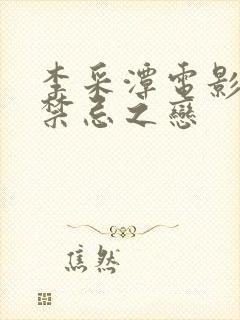 李采潭電影
禁忌之戀
焦然